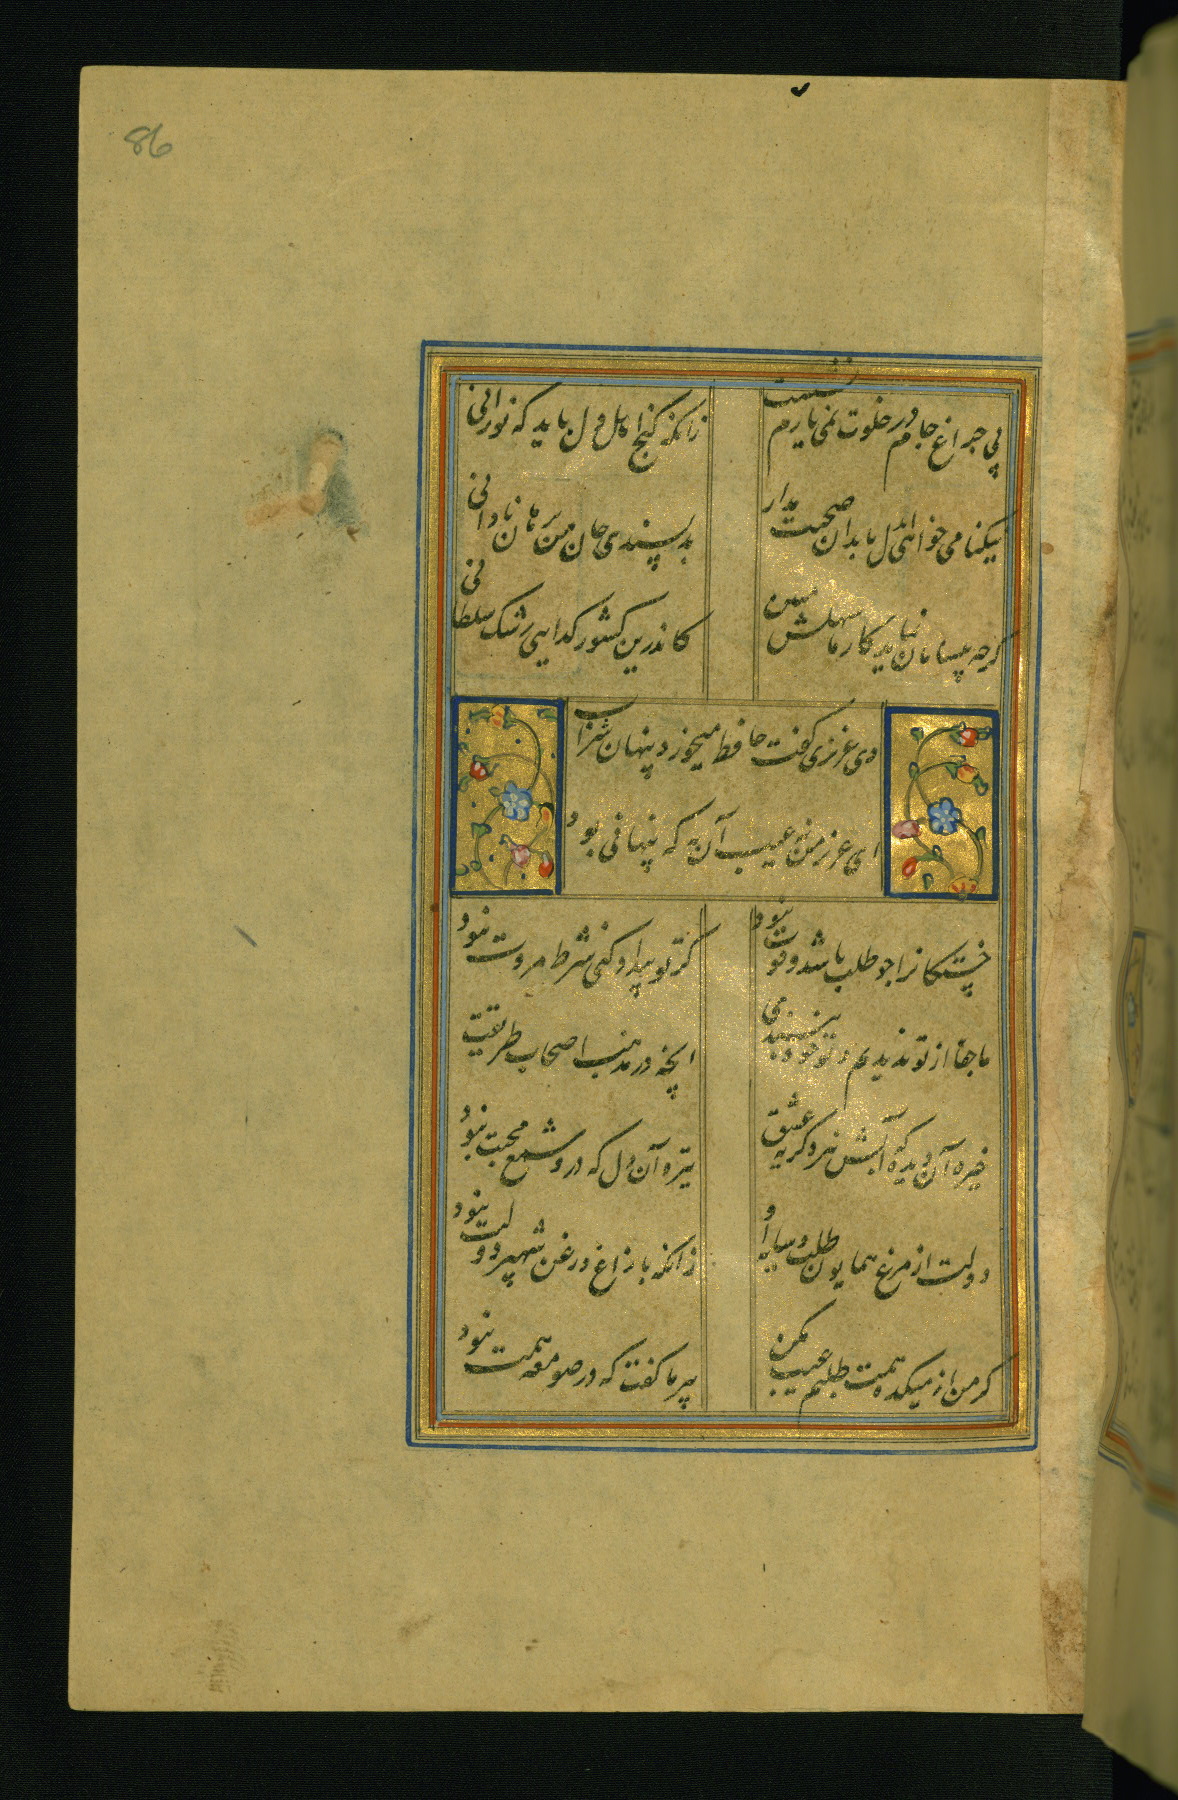 86
بی چراغ جام در خلوت نمی‌یارم نشست
زانکه کنج اهل دل باید که نورانی
نیکنامی خواهی ایدل با بدان صحبت مدار
بد پسندی جان من برهان نادانی
کرچه بیسامان نماید کار ما سهلش مبین
کاندرین کشور کدایی رشک سلطانی
دی عزیزی کفت حافظ میخورد پنهان شراب
ای عزیز من نه عیب آن به که پنهانی بود
خستکانرا چو طلب باشد و قوت نبود
کر تو بیداد کنی شرط مروت نبود
ما جفا از تو ندیدیم و تو خود نپسندی
آنچه در مذهب اصحاب طریقت
خیره آن دیده که آبش نبرد کریه عشق
تیره آن دل که درو شمع محبت نبود
دولت از مرغ همایون طلب و سایه او
زانکه با زاغ و زغن شهپر دولت نبود
کر من از میکده همت طلبم عیب مکن
پیر ما کفت که در صومعه همت نبود